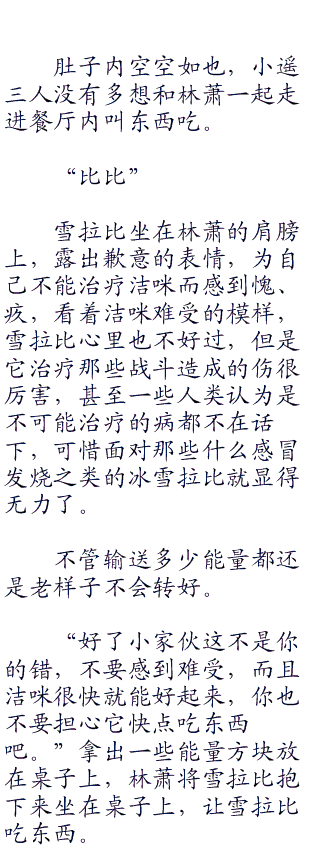 肚子内空空如也，小遥
三人没有多想和林萧一起走
进餐厅内叫东西吃。
“比比”
雪拉比坐在林萧的肩膀
上，露出歉意的表情，为自
己不能治疗洁咪而感到愧、
疚，看着洁咪难受的模样，
雪拉比心里也不好过，但是
它治疗那些战斗造成的伤很
厉害，甚至一些人类认为是
不可能治疗的病都不在话
下，可惜面对那些什么感冒
发烧之类的冰雪拉比就显得
无力了。
不管输送多少能量都还
是老样子不会转好。
“好了小家伙这不是你
的错，不要感到难受，而且
洁咪很快就能好起来，你也
不要担心它快点吃东西
吧。”拿出一些能量方块放
在桌子上，林萧将雪拉比抱
下来坐在桌子上，让雪拉比
吃东西。